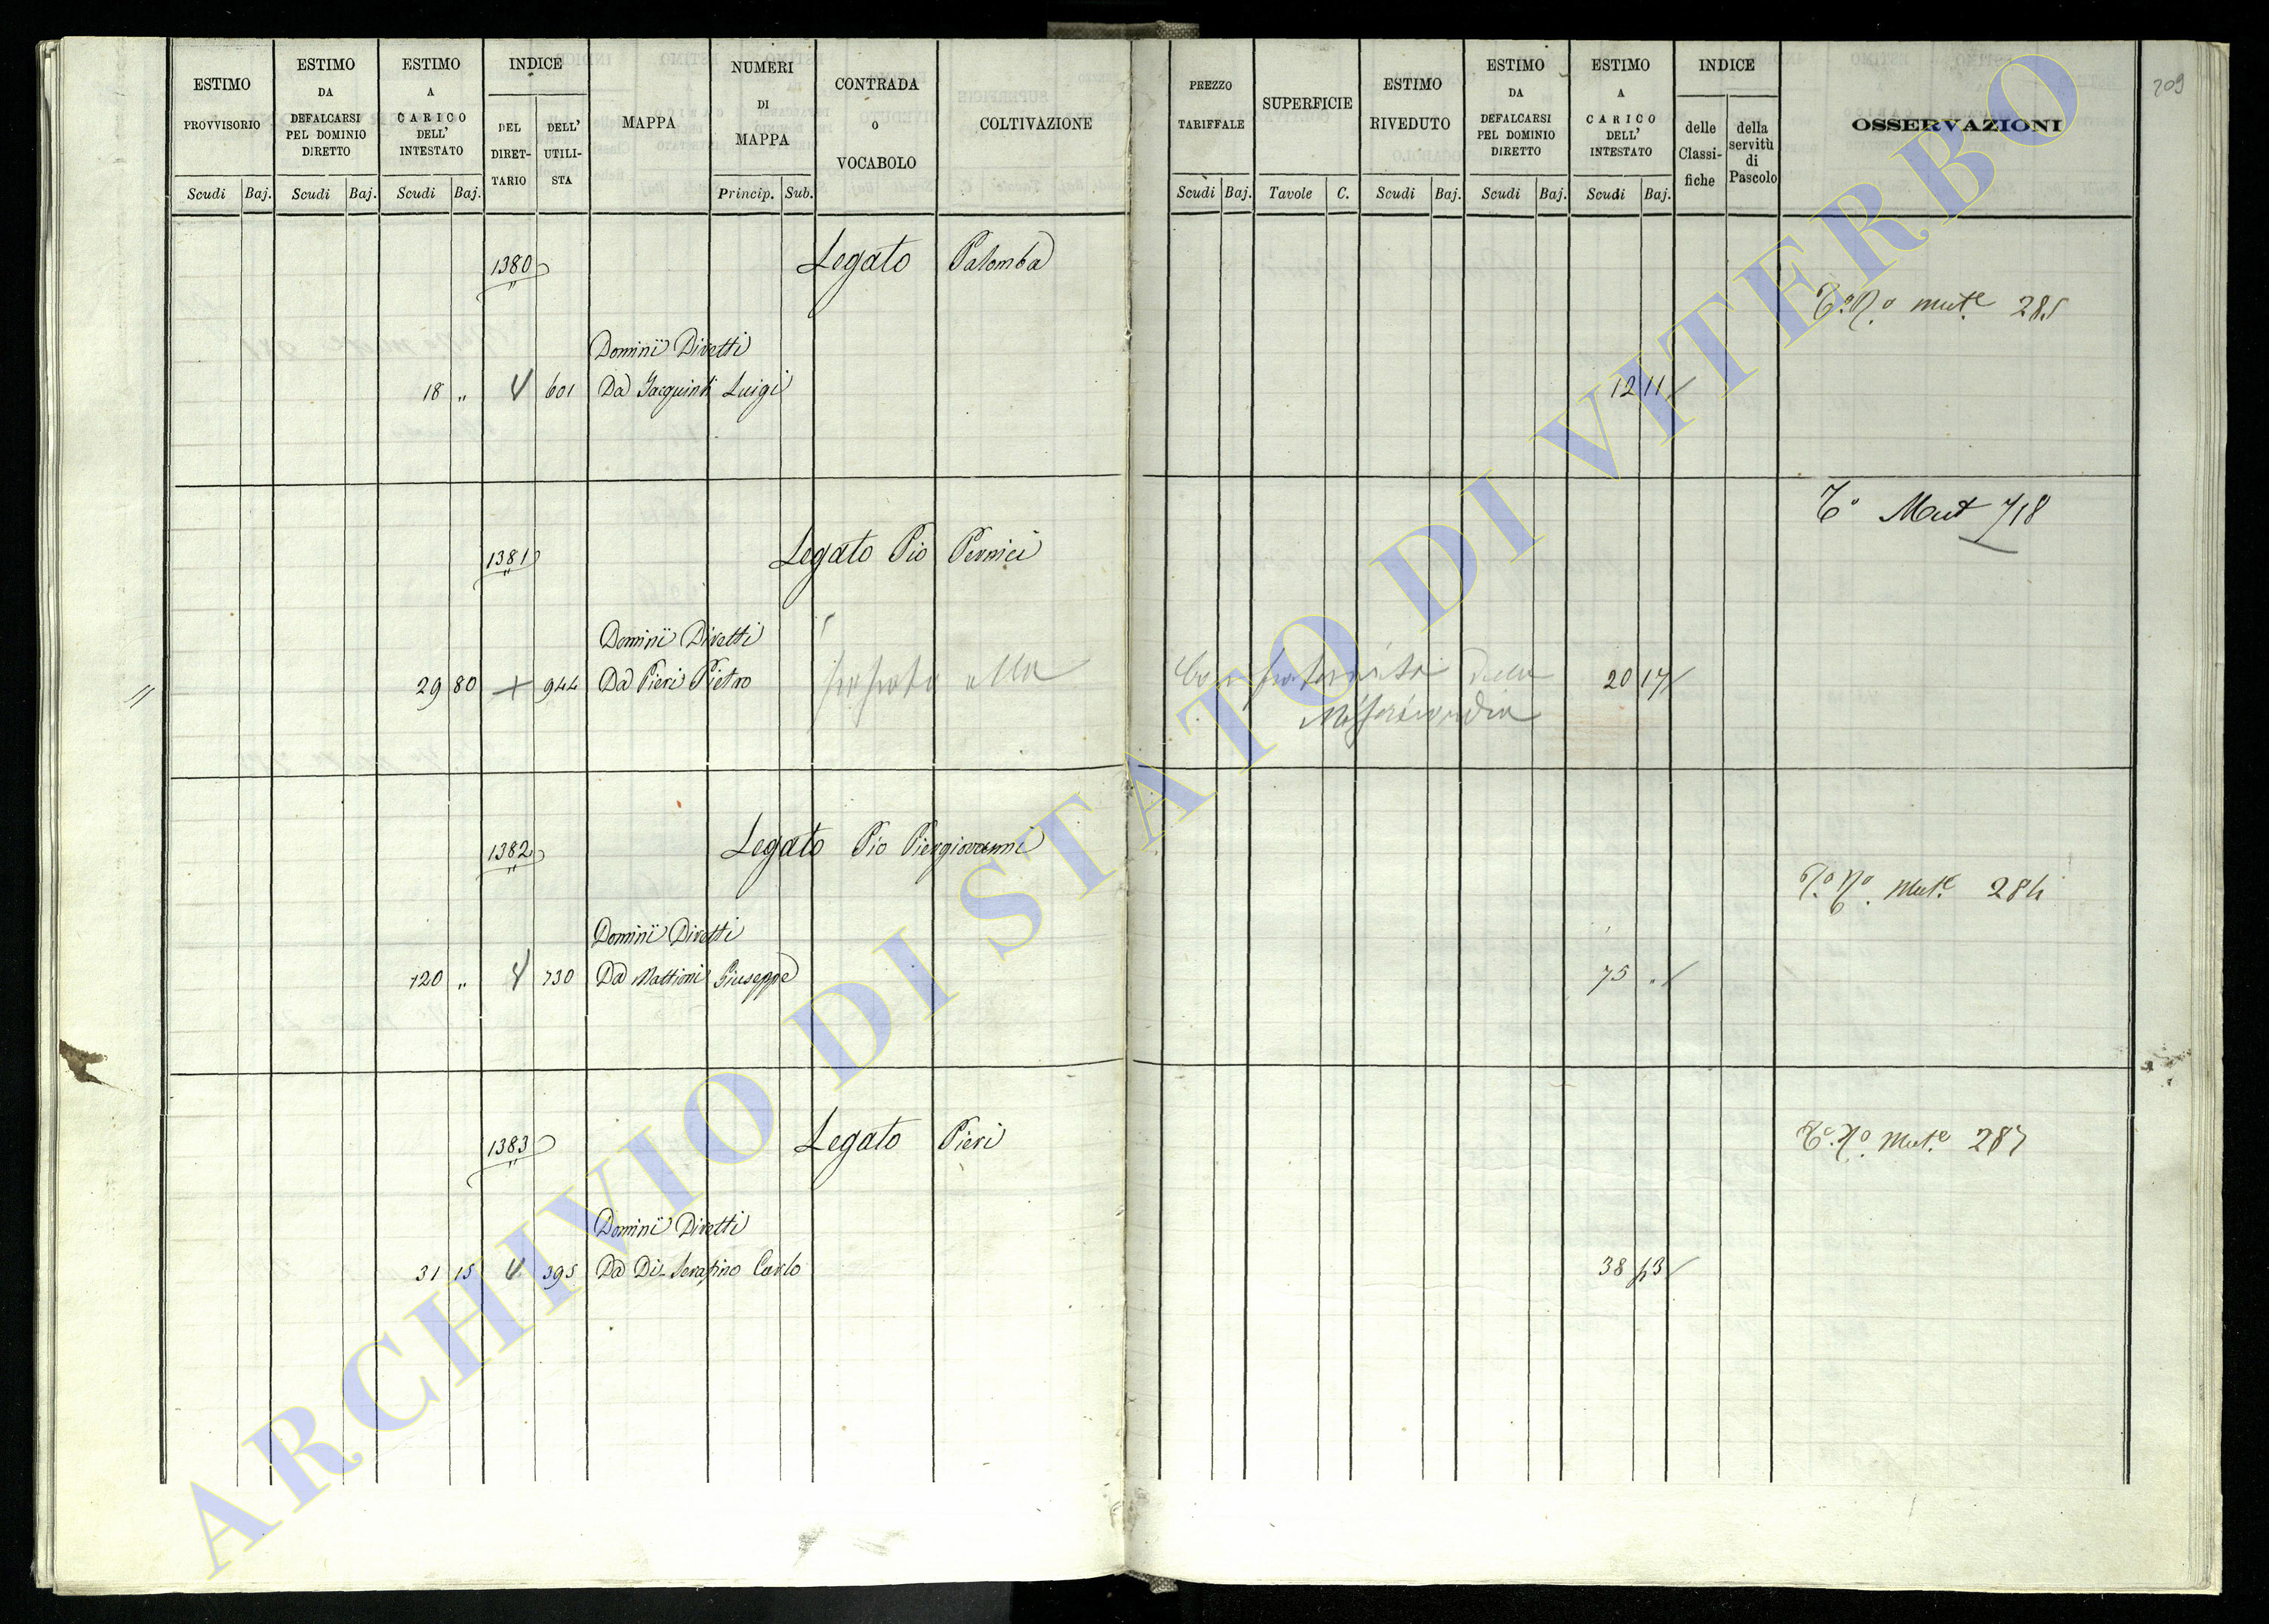 209
ESTIMO PROVVISORIO
ESTIMO DA DEFALCARSI PEL DOMINIO DIRETTO
ESTIMO A CARICO DELL' INTESTATO
INDICE
DEL DIRET-TARIO
DELL' UTILI-STA
MAPPA
NUMERI DI MAPPA
CONTRADA O VOCABOLO
COLTIVAZIONE
PREZZO TARIFFALE
SUPERFICIE
ESTIMO RIVEDUTO
ESTIMO DA DEFALCARSI PEL DOMINIO DIRETTO
ESTIMO A CARICO DELL' INTESTATO
INDICE
delle Classi-fiche
della servitù di Pascolo
OSSERVAZIONI
Scudi Baj. Scudi Baj. Scudi Baj. Princip. Sub.
Scudi Baj. Tavole C. Scudi Baj. Scudi Baj. Scudi Baj.
1380 Legato Palomba
T.o N.o mut.e 285
Dominii Diretti
18 „ 601 Da Jacquinti Luigi 12 11
T.o Mut 718
1381 Legato Pio Pernici
Dominii Diretti
29 80 + 944 Da Pieri Pietro alla Confraternita della 20 17
Misericordia
1382 Legato Pio Piergiovanni
T.o N.o Mut.e 284
Dominii Diretti
120 „ 730 Da Mattioni Giuseppe 75 .
1383 Legato Pieri
T.o N.o Mut.e 287
Dominii Diretti
31 15 395 Da Di Serafino Carlo 38 53
ARCHIVIO DI STATO DI VITERBO